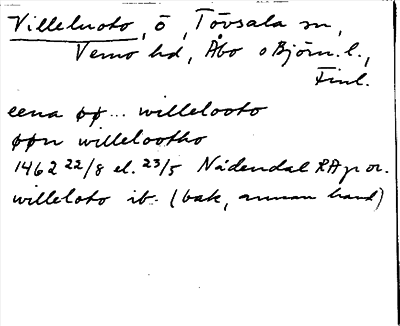 Villeluoto, ö, Tövsala sn,
Vemo hd, Åbo o Björn. l.,
Finl.
eena øø... willelooto
øøn willelootho
1462 22/8 el. 23/5 Nådendal RAp or.
willeloto ib. (bak, annan hand)